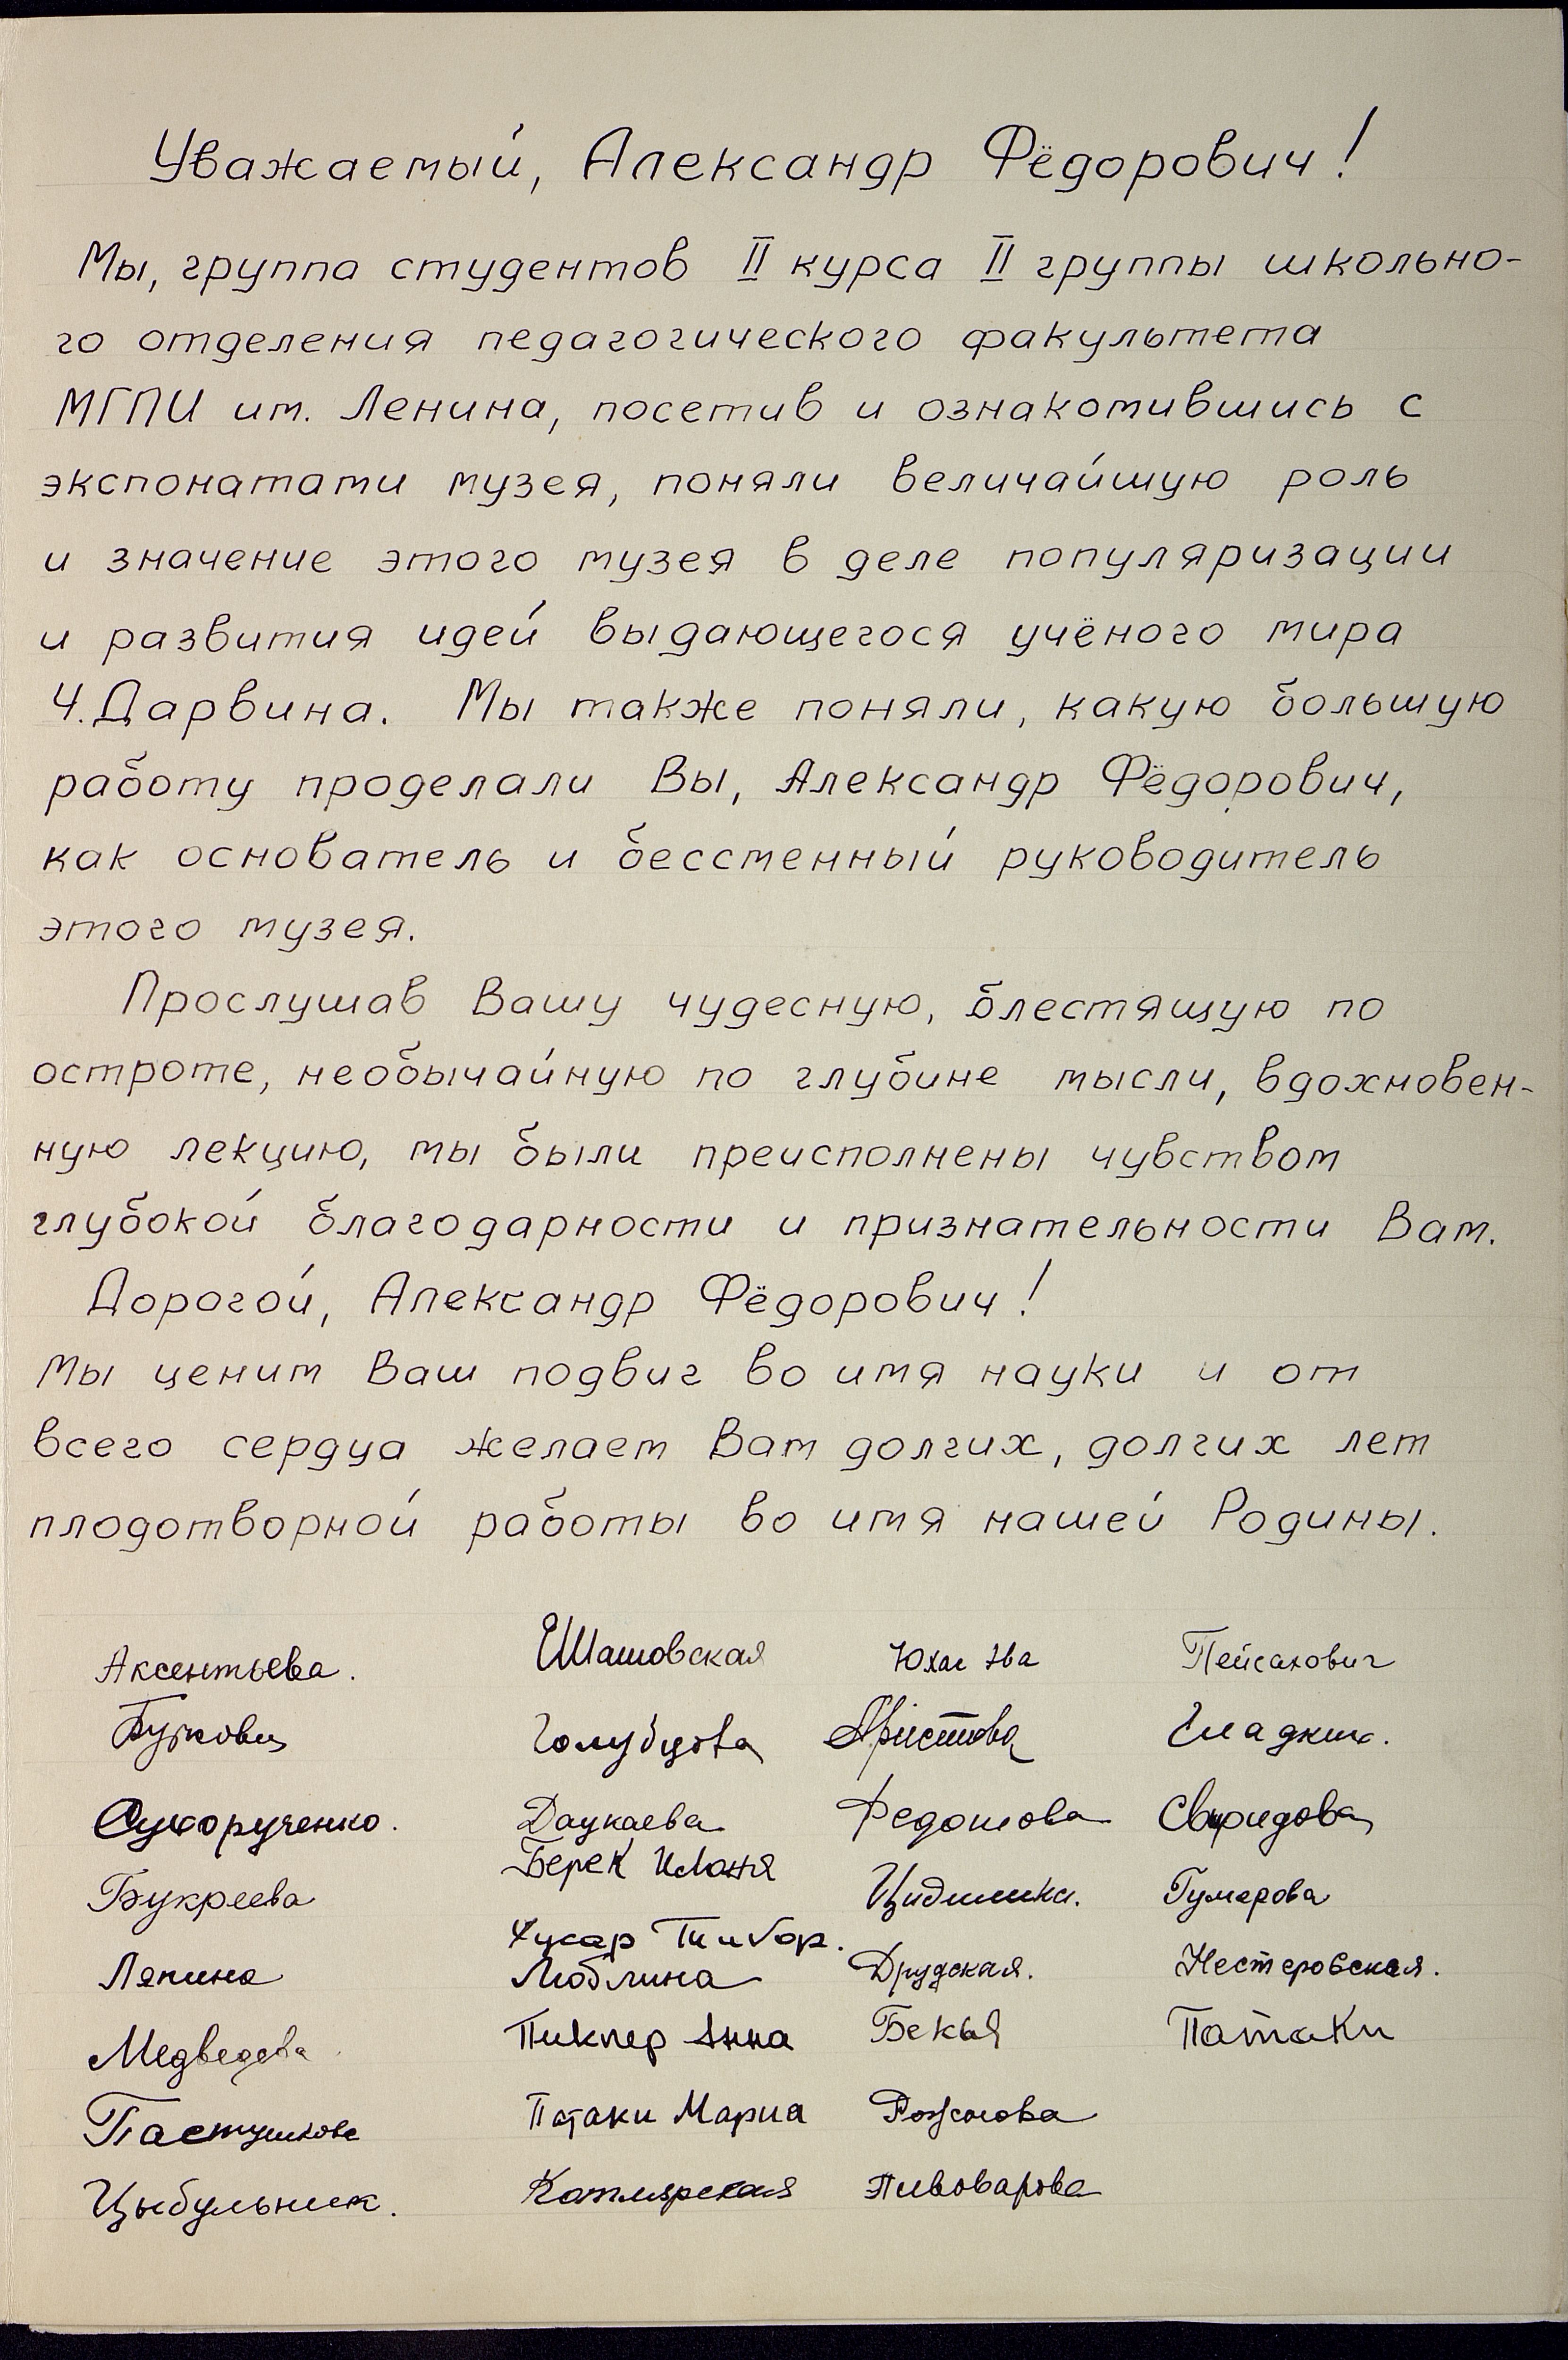 Уважаемый, Александр Фёдорович!
Мы, группа студентов II курса II группы школьно-
го отделения педагогического факультета
МГПИ им. Ленина, посетив и ознакомившись с
экспонатами музея, поняли величайшую роль
и значение этого музея в деле популяризации
и развития идей выдающегося учёного мира
Ч. Дарвина. Мы также поняли, какую большую
работу проделали Вы, Александр Фёдорович,
как основатель и бессменный руководитель
этого музея.
Прослушав Вашу чудесную, блестящую по
остроте, необычайную по глубине мысли, вдохновен-
ную лекцию, мы были преисполнены чувством
глубокой благодарности и признательности Вам.
Дорогой, Александр Фёдорович!
Мы ценим Ваш подвиг во имя науки и от
всего сердца желаем Вам долгих, долгих лет
плодотворной работы во имя нашей Родины.
Аксентьева.
Сухорученко.
Букреева
Ляпина
Медведева
Пастушкова
Цыбульник.
ЕШашовская
Голубцова
Даукаева
Берек Илона
Тибор.
Люблина
Анна
Патаки Мариа
Котлярская
Юхас Эва
Аристова
Федотова
Друдская.
Пивоварова
Пейсахович
Гладких.
Свиридова
Гумерова
Нестеровская.
Патаки